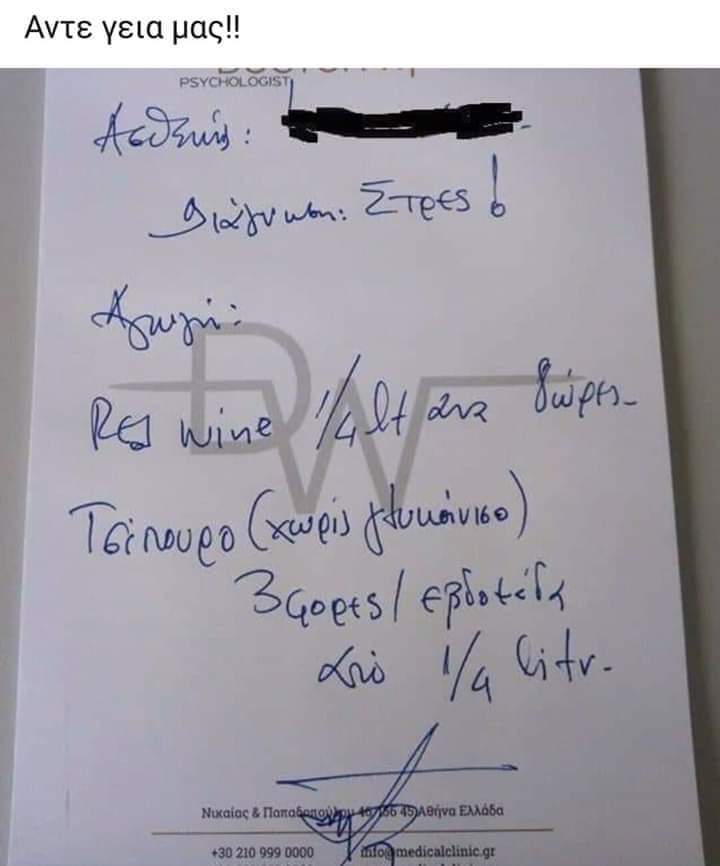 Αντε γεια μας!!
PSYCHOLOGIST
Ασθενής:
Διάγνωση: Στρες!
Αγωγή:
DW
Red wine 1/4 lt ανα 8ώρες-
Τσίπουρο (χωρίς γλυκάνισο)
3 φορες/ εβδομάδα
από 1/4 litr.
Νικαίας & Παπαδοπούλου 45)Αθήνα Ελλάδα
+30 210 999 0000 info@medicalclinic.gr